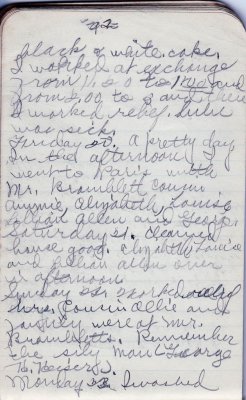 22
black & white cake.
I worked at exchange
from 11:00 to 1:00 and
from 5:00 to 8 and then
I worked relief. Lula
was sick.
Friday 20. A pretty day
In the afternoon
went to Paris with
Mr. Bramblett cousin
Annie, Elizabeth, Louise
Lillian Allen and George.
Saturday 21. cleaned
house good. Elizabeth Louise
and Lillian Allen over
in afternoon.
Sunday 22. worked all day
hrs. Cousin Allie and
family were at Mr.
Brambletts. Remember
the silly man (George
H. Keiser).
Monday 23. I washed